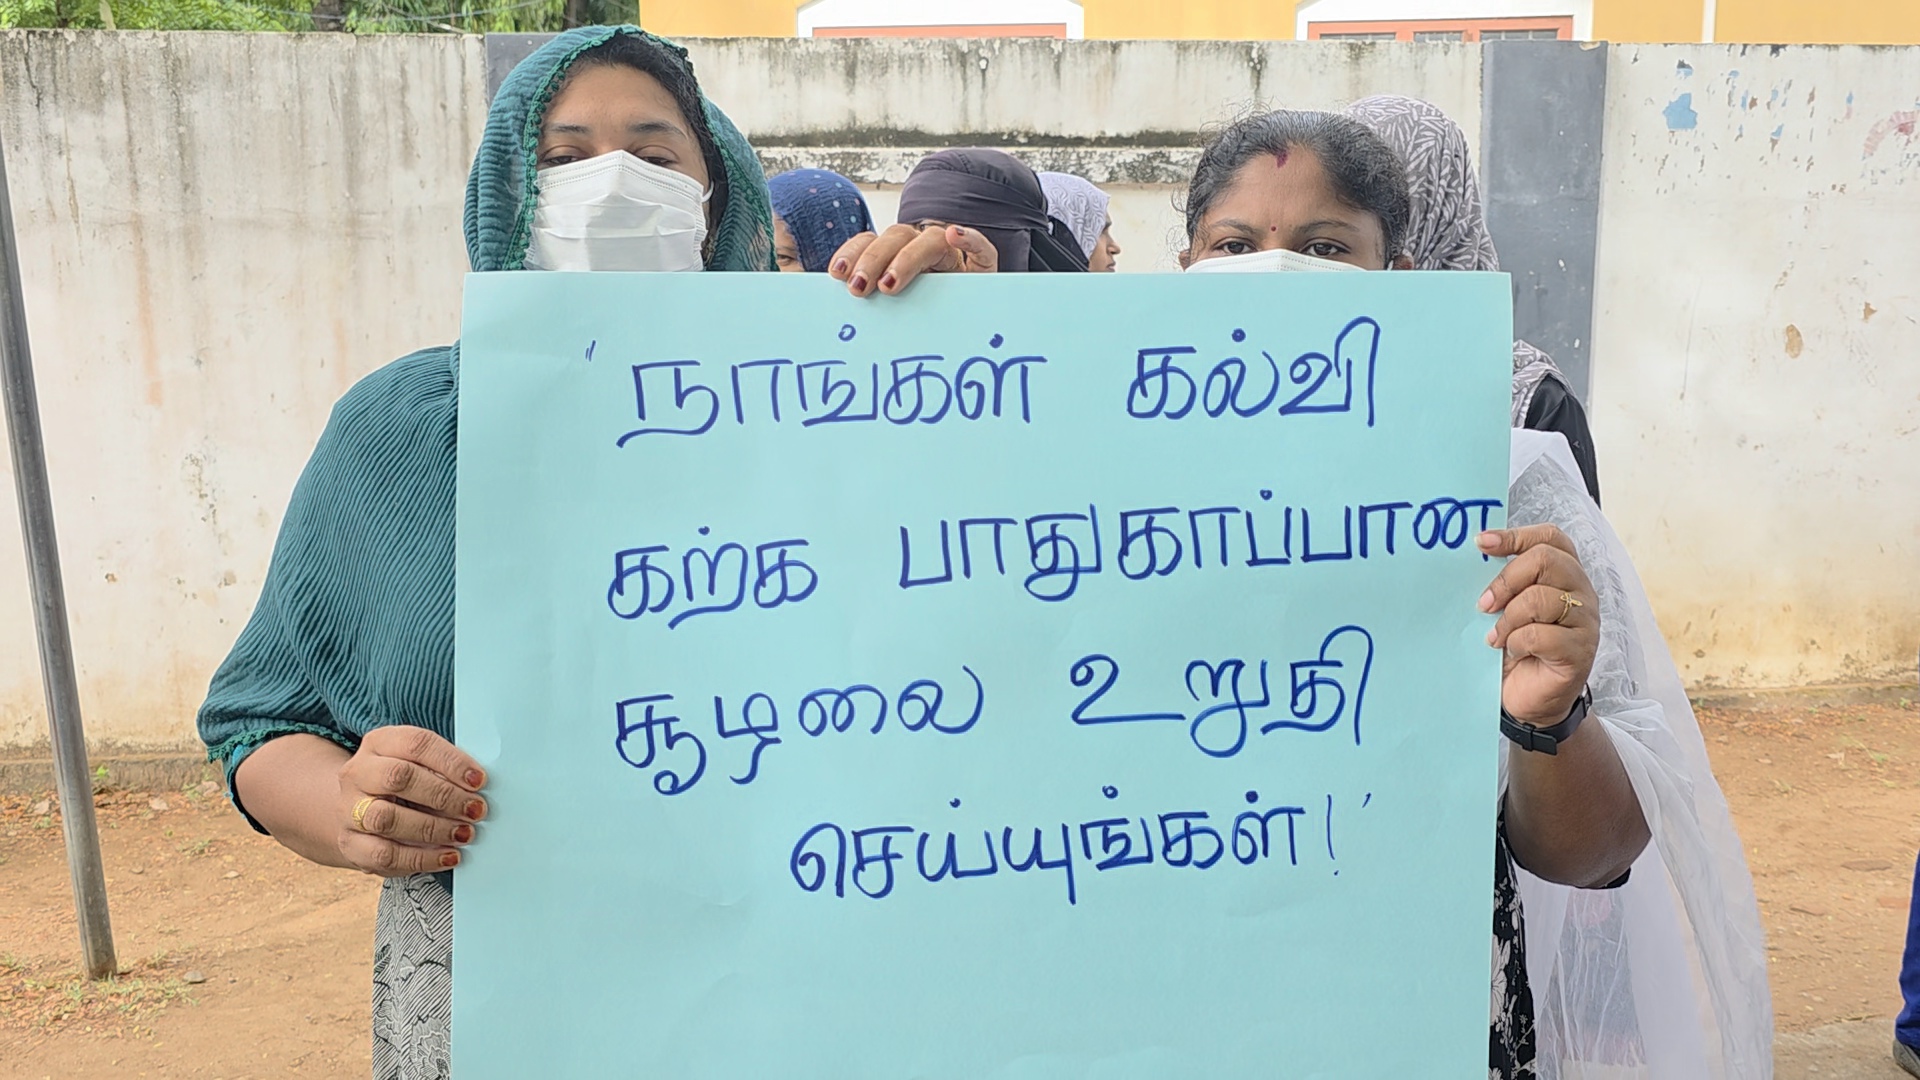 " நாங்கள் கல்வி
கற்க பாதுகாப்பான
சூழலை உறுதி
செய்யுங்கள்!'